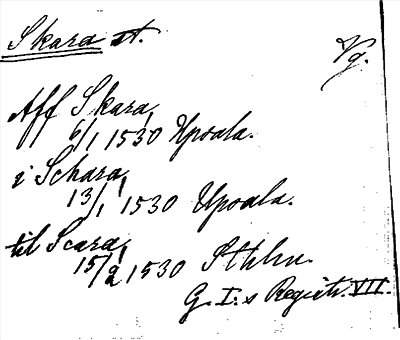 Skara st. Vg.
Aff Skara,
6/1 1530 Upsala.
i Schara,
13/1 1530 Upsala.
til Scara,
15/2 1530 Sthlm.
G. I:s Registr. VII.